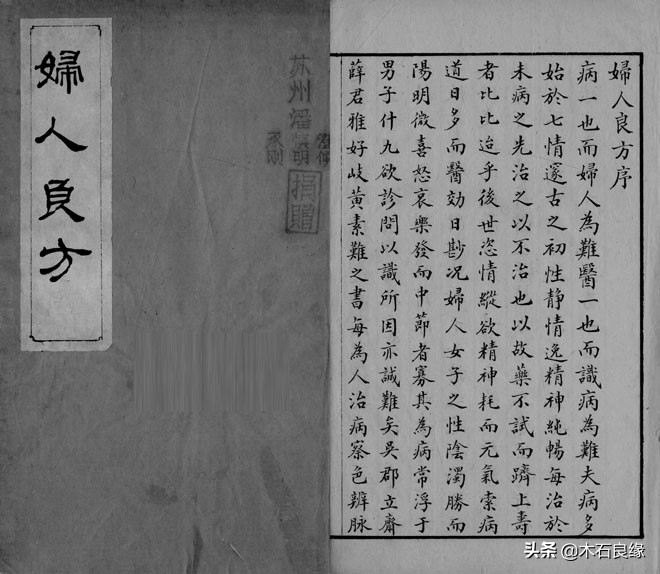 婦人良方
苏州潘
捐贈
婦人良方序
病一也而婦人為難醫一也而識病為難夫病多
始於七情邃古之初性静情逸精神純暢每治於
未病之先治之以不治也以故藥不試而躋上壽
者比比迨乎後世恣情縱欲精神耗而元氣索病
道日多而醫効日尠况婦人女子之性陰濁勝而
陽明微喜怒哀樂發而中節者寡其為病常浮于
男子什九欲診問以識所因亦誠難矣吳郡立齋
薛君雅好岐黃素難之書每為人治病察色辨脉
头条 @木石良缘